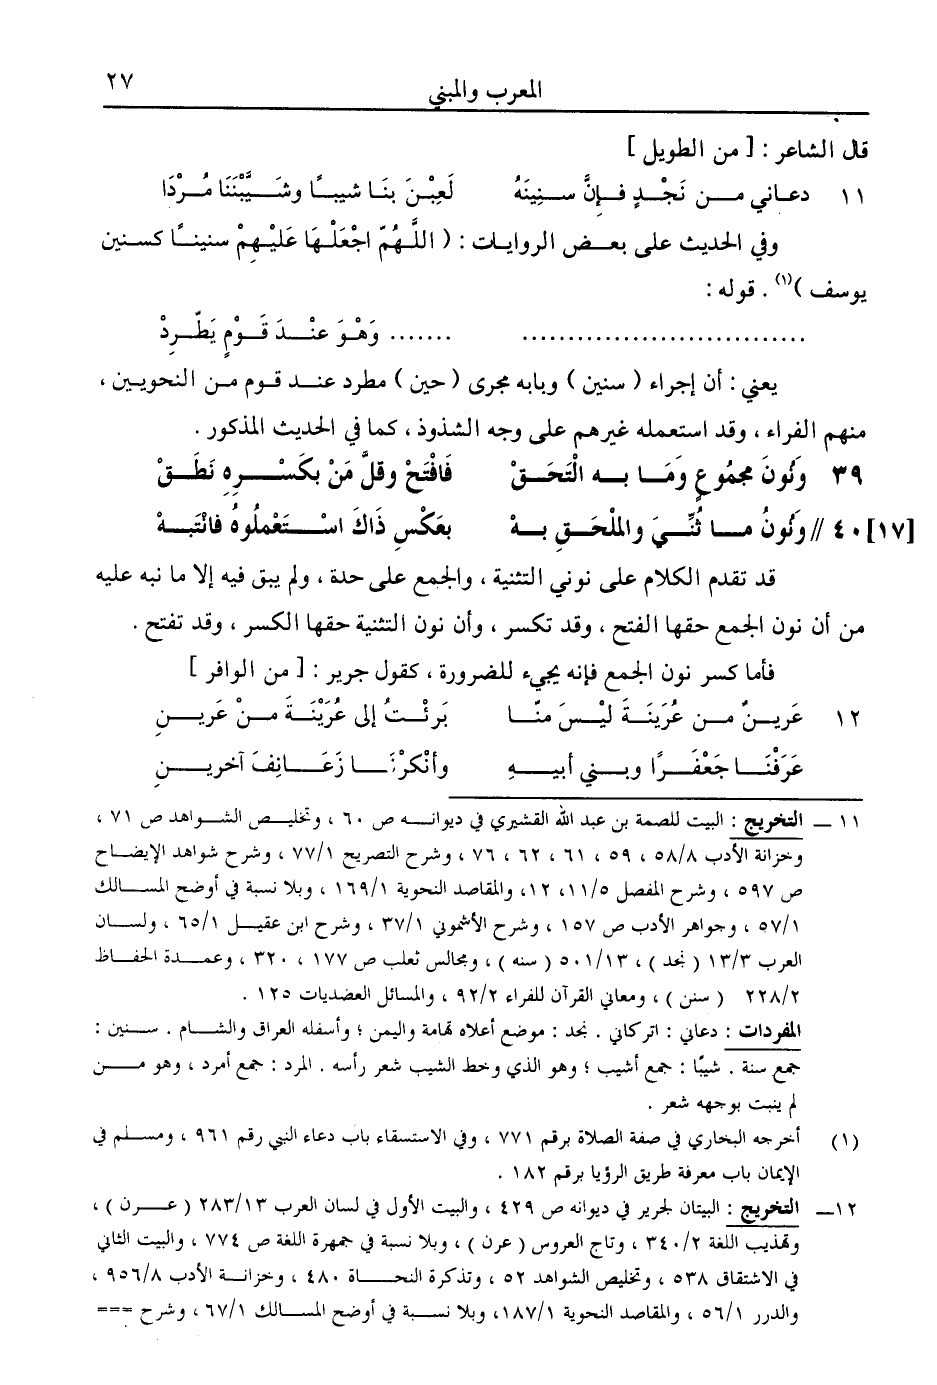 ٢٧
المعرب والمبني
قال الشاعر : [ من الطويل ]
١١ دعاني مــن نَجْــدٍ فــإنَّ ســنِينَهُ لَعِبْنَ بنَــا شيبــًا وشَــيَّبْنَنَا مُــرْدَا
وفي الحديث على بعــض الروايات : ( اللَّهُمَّ اجْعَلْهَا عَلَيْهِمْ سنينًا كسنين
يوسف )(١) . قوله :
.............................. ....... وَهْوَ عنْــدَ قَــوْمٍ يَطَّــرِدْ
يعني : أن إجراء ( سنين ) وبابه مجرى ( حين ) مطرد عنــد قوم مــن النحويــين ،
منهم الفراء ، وقد استعمله غيرهم على وجه الشذوذ ، كما في الحديث المذكور .
٣٩ وَنُونَ مجمُوعٍ وَمَــا بــه الْتَحَــقْ فَافْتَحْ وقلَّ مَنْ بكَسْــرِهِ نَطَــقْ
[١٧] ٤٠ // وَنُونُ مــا ثُنِّــيَ والملْحَــقِ بــهْ بعَكْسِ ذَاكَ اسْــتَعْمَلُوهُ فانْتَبــهْ
قد تقدم الكلام على نوني التثنية ، والجمع على حدة ، ولم يبق فيه إلا ما نبه عليه
من أن نون الجمع حقها الفتح ، وقد تكسر ، وأن نون التثنية حقها الكسر ، وقد تفتح .
فأما كسر نون الجمع فإنه يجيء للضرورة ، كقول جرير : [ من الوافر ]
١٢ عَرينٌ مــن عُرَينَةَ لَيْــسَ منّــا بَرئْــتُ إلى عُرَيْنَــةَ مــنْ عَريــنِ
عَرَفْنَــا جَعْفَــرًا وبــني أبيــهِ وأنْكرْنَــا زَعَــانِفَ آخريــنِ
١١ ــ التخريج : البيت للصمة بن عبد الله القشيري في ديوانــه ص ٦٠ ، وتخليــص الشــواهد ص ٧١ ،
وخزانة الأدب ٥٨/٨ ، ٥٩ ، ٦١ ، ٦٢ ، ٧٦ ، وشرح التصريح ٧٧/١ ، وشرح شواهد الإيضــاح
ص ٥٩٧ ، وشرح المفصل ١١/٥، ١٢، والمقاصد النحوية ١٦٩/١ ، وبلا نسبة في أوضح المســالك
٥٧/١ ، وجواهر الأدب ص ١٥٧ ، وشرح الأشموني ٣٧/١ ، وشرح ابن عقيــل ٦٥/١ ، ولســان
العرب ١٣/٣ ( نجد ) ، ٥٠١/١٣ ( سنه ) ، ومجالس ثعلب ص ١٧٧ ، ٣٢٠ ، وعمــدة الحفــاظ
٢٢٨/٢ ( سنن ) ، ومعاني القرآن للفراء ٩٢/٢ ، والمسائل العضديات ١٢٥ .
المفردات : دعاني : اتركاني . نجد : موضع أعلاه تهامة واليمن ؛ وأسفله العراق والشــام . ســنين :
جمع سنة . شيبًا : جمع أشيب ؛ وهو الذي وخط الشيب شعر رأسه . المرد : جمع أمرد ، وهو مــن
لم ينبت بوجهه شعر .
(١) أخرجه البخاري في صفة الصلاة برقم ٧٧١ ، وفي الاستسقاء باب دعاء النبي رقم ٩٦١ ، ومسلم في
الإيمان باب معرفة طريق الرؤيا برقم ١٨٢ .
١٢ــ التخريج : البيتان لجرير في ديوانه ص ٤٢٩ ، والبيت الأول في لسان العرب ٢٨٣/١٣ ( عــرن ) ،
وتهذيب اللغة ٣٤٠/٢ ، وتاج العروس ( عرن ) ، وبلا نسبة في جمهرة اللغة ص ٧٧٤ ، والبيت الثاني
في الاشتقاق ٥٣٨ ، وتخليص الشواهد ٥٢ ، وتذكرة النحــاة ٤٨٠ ، وخزانــة الأدب ٩٥٦/٨ ،
والدرر ٥٦/١ ، والمقاصد النحوية ١٨٧/١، وبلا نســبة في أوضح المســالك ٦٧/١ ، وشرح ===